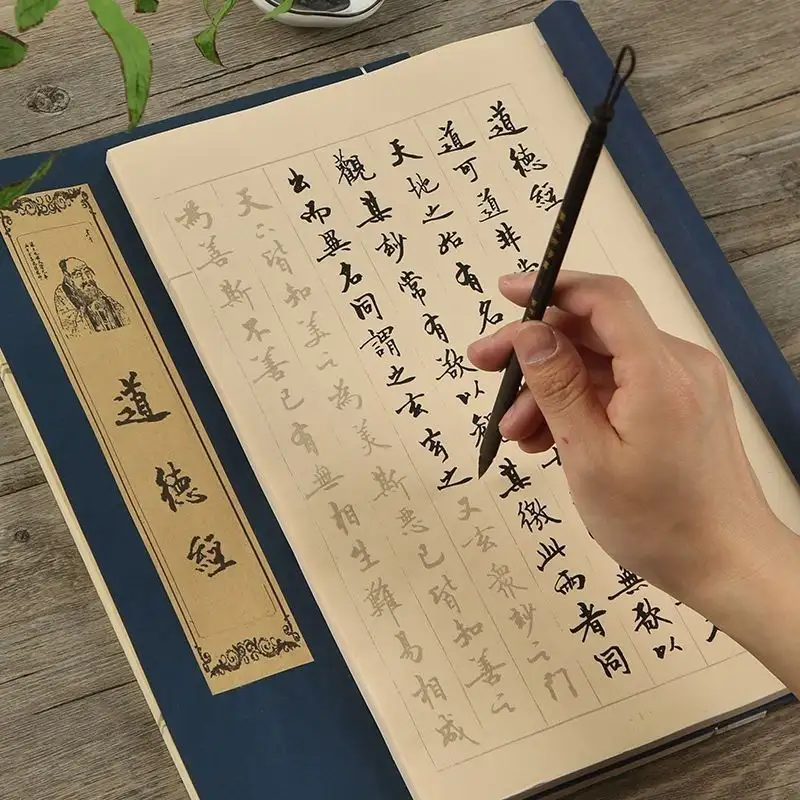 道德經
道可道非
天地之始有名
無欲以
觀其妙常有欲以觀其徼此兩者同
出而異名同謂之玄玄之又玄眾妙之門
天下皆知美之為美斯惡已皆知善之
為善斯不善已有無相生難易相成
道德經